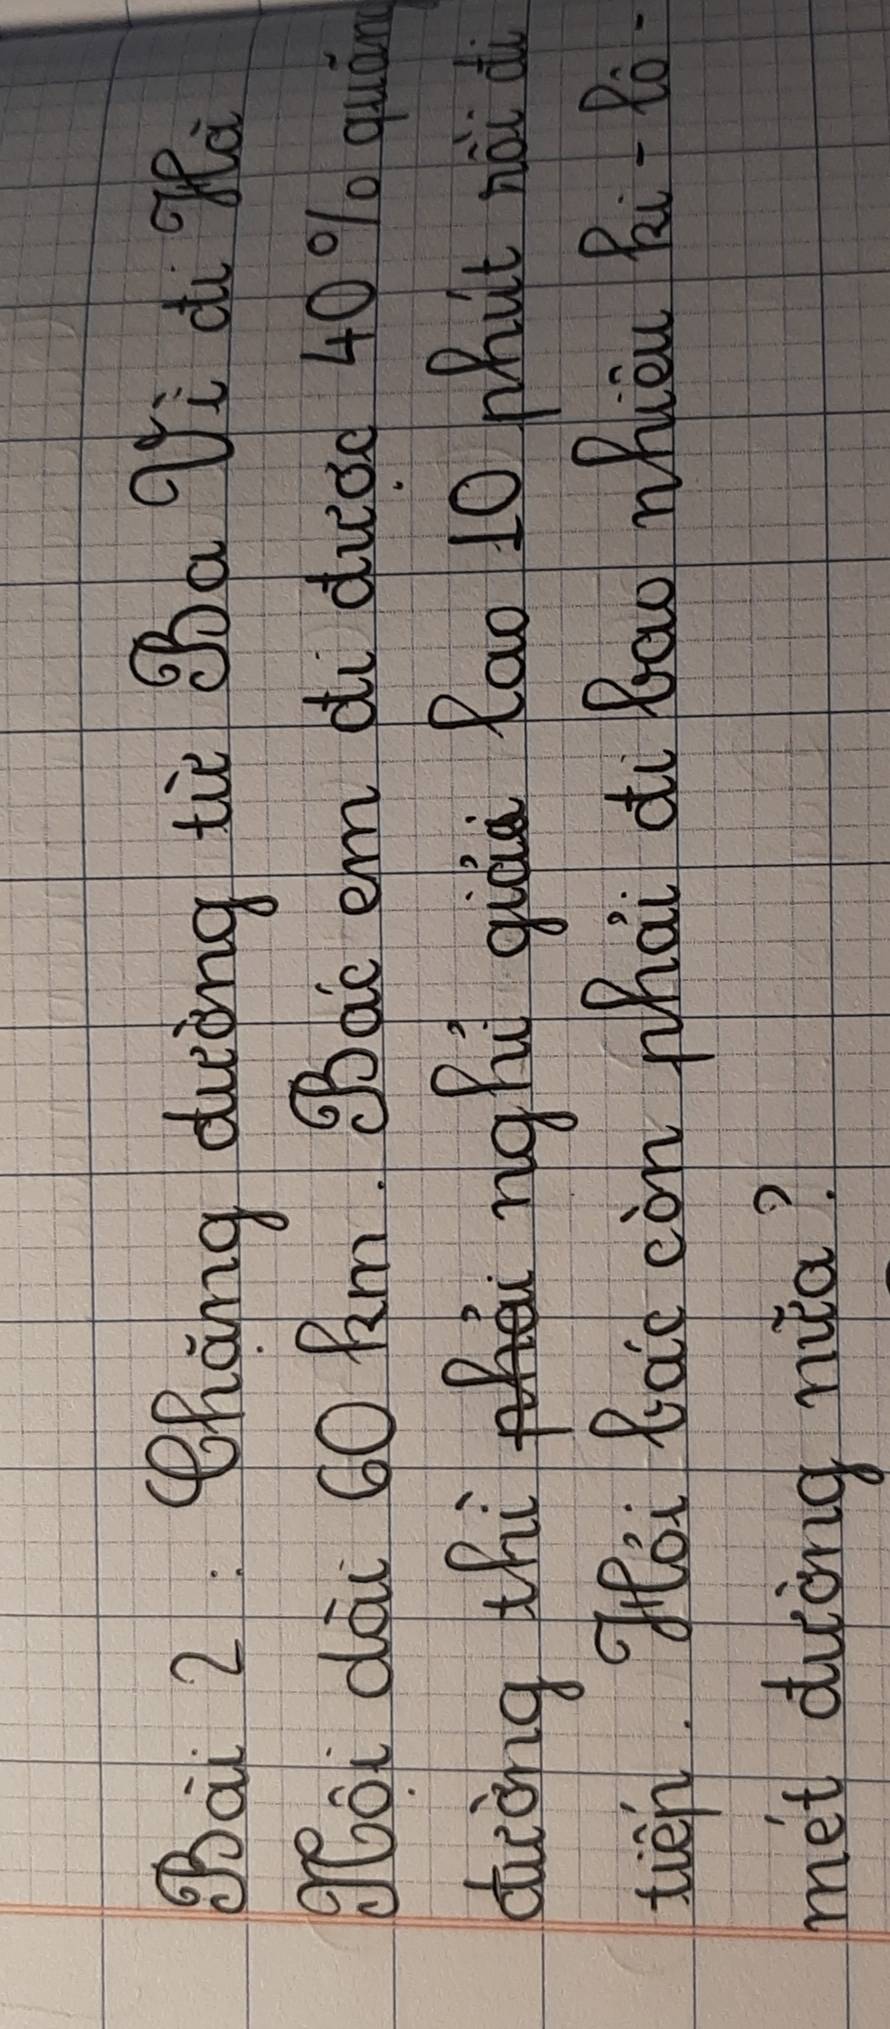 Bài 2 : Chặng đường từ Ba Vì đi Hà
Nội dài 60 km. Bác em đi được 40% quãng
đường thì phải nghỉ giải lao 10 phút rồi đi
tiếp. Hỏi bác còn phải đi bao nhiêu ki-lô-
mét đường nữa?